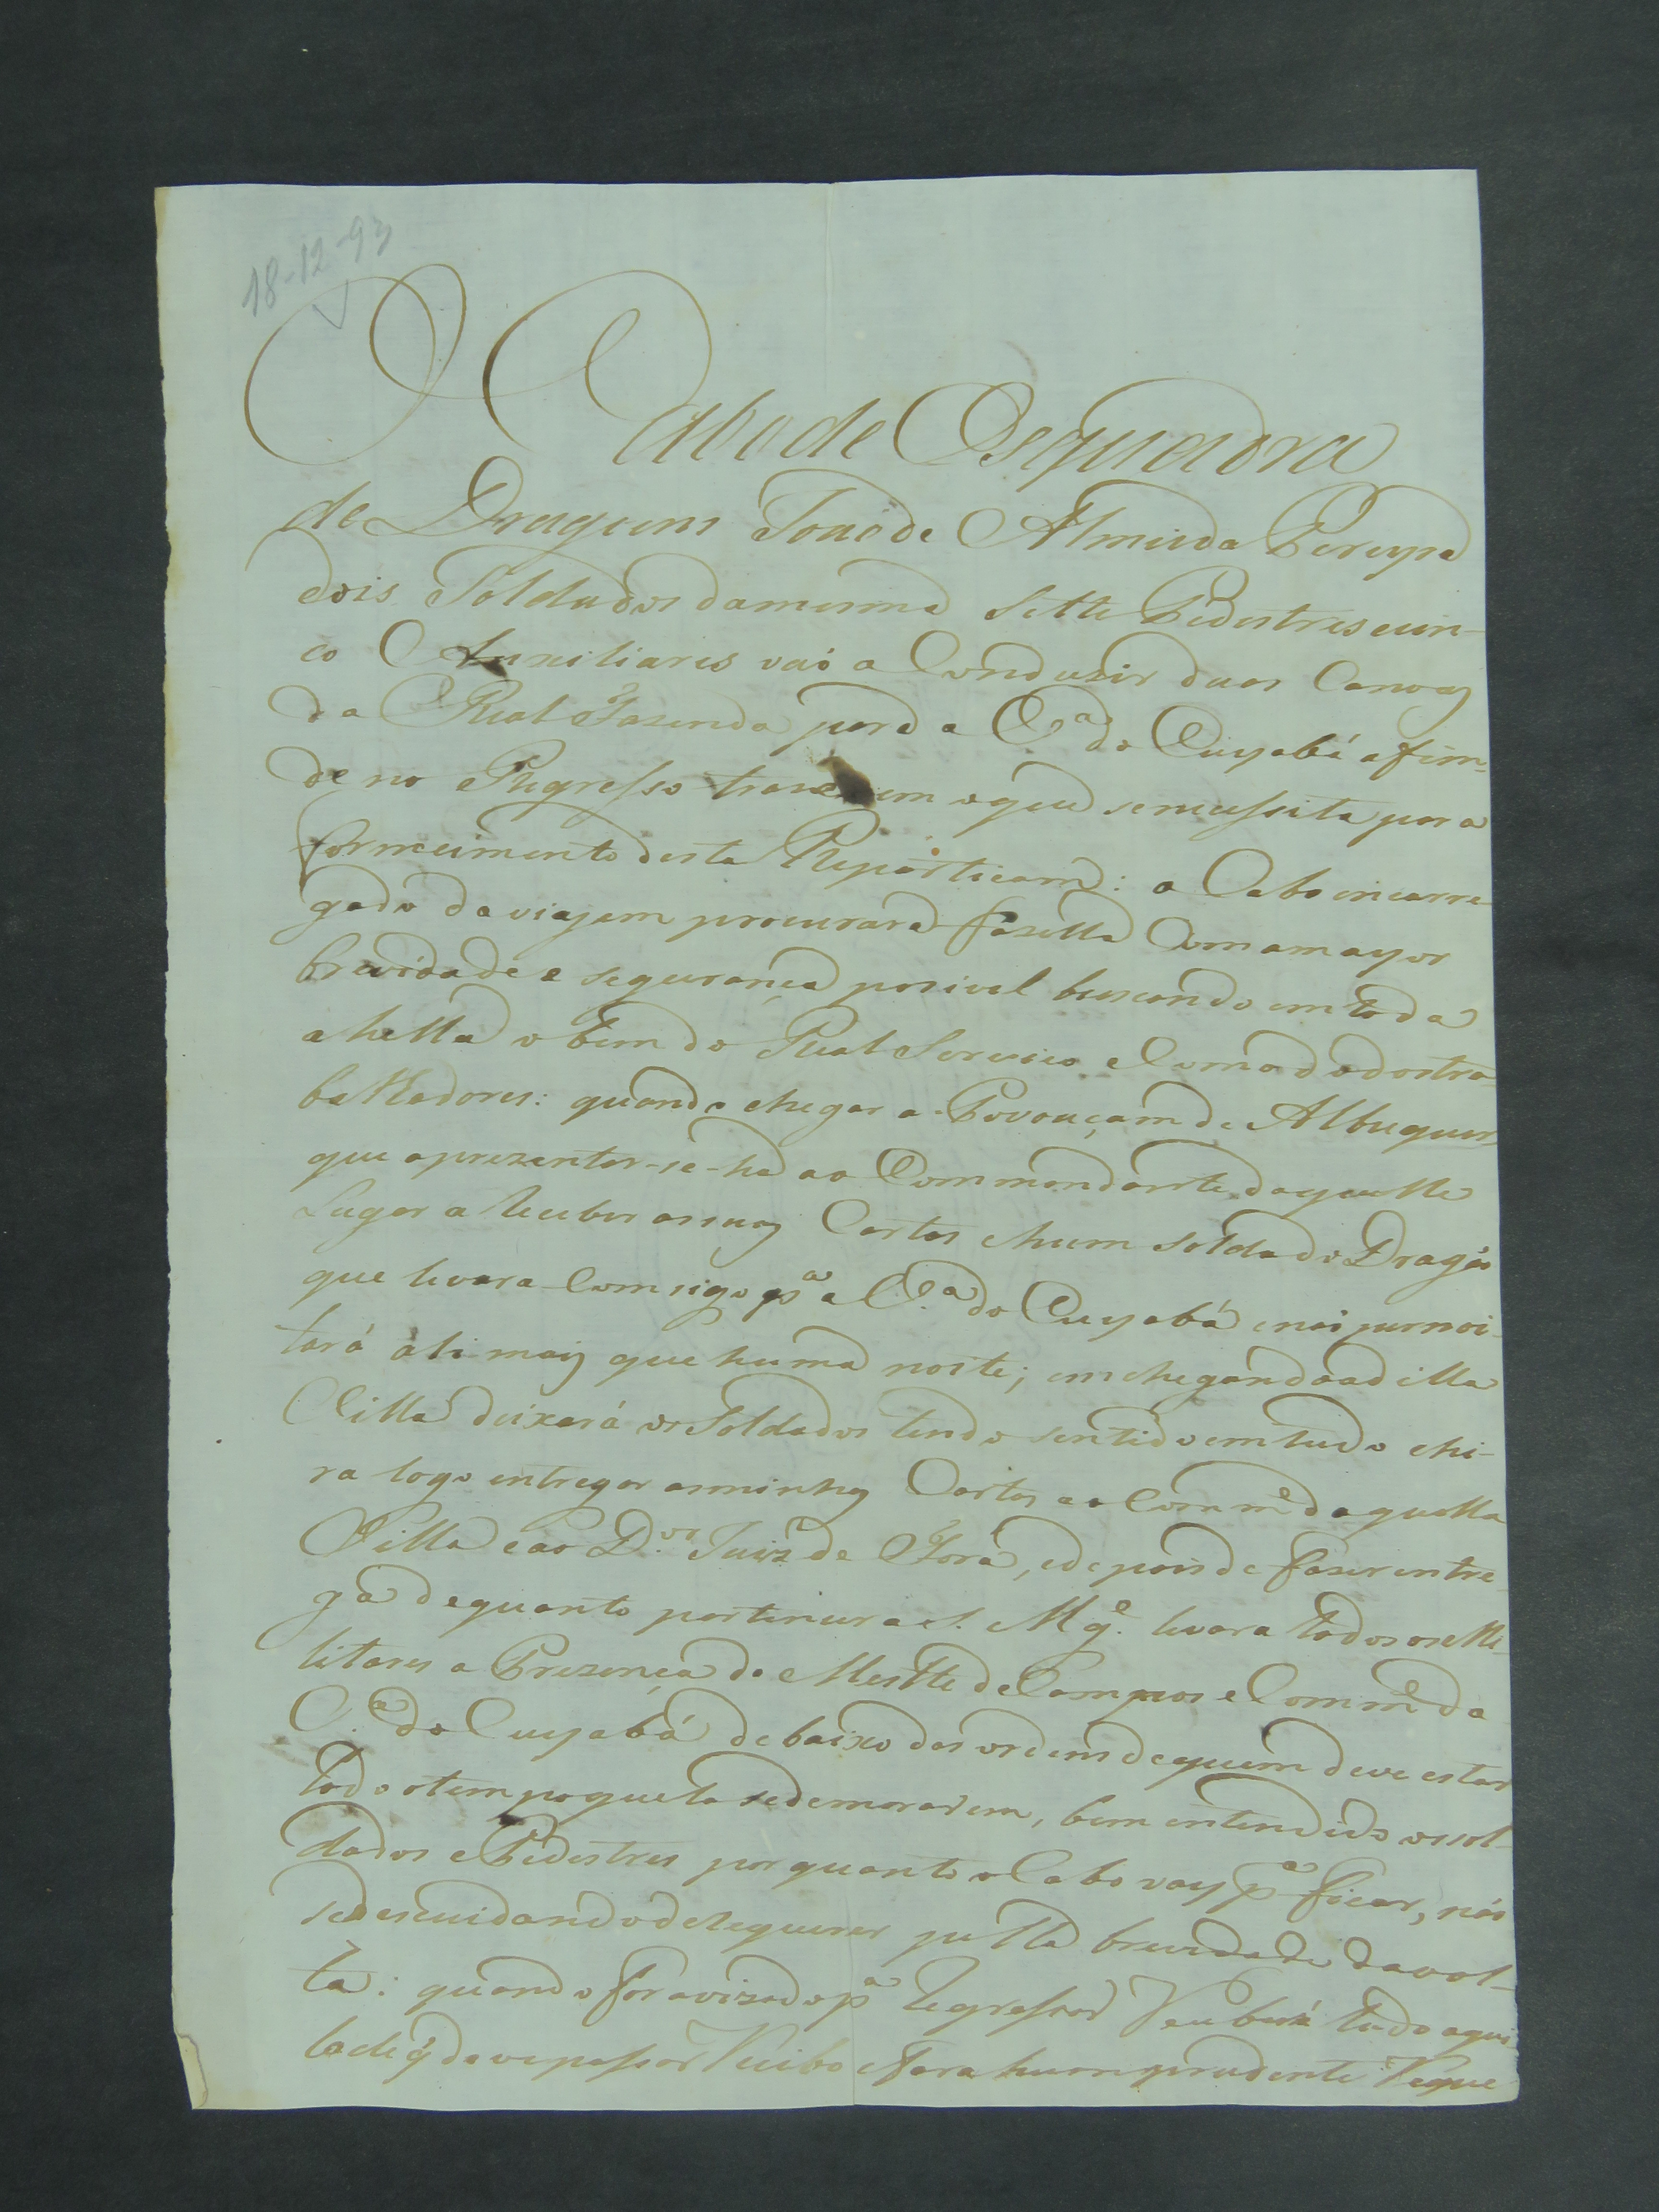 18-12-93
O Cabo de Esquadra
de Dragoens Joaõ de Almeida Pereyra
dois Soldados da mesma Sette Pedestres e cin-
co Auxiliares vai a Conduzir duas Canoas
da Real Fazenda para a Vᵃ do Cuyabá afim
de no Regresso trazerem o que se necessita para
fornecimento desta Reparticam: o Cabo encarre-
gado da viajem procurará fazella Com a mayor
brevidade e segurança posivel buscando em toda
a hella o bem do Real Serviço e Comodo dos tra-
balhadores: quando chegar a Povoaçam de Albuquer
que aprezentar-se-ha ao Commandante daquelle
Lugar a Receber as suas Cartas e hum soldado Dragaõ
que levara Comsigo pᵃ a Vᵃ do Cuyabá e naõ pernoi-
tará ali mais que huma noite; em chegando a d illa
Villa deixará os Soldados tendo sentido em tudo e hi-
ra logo entregar as minhas Cartas ao Commᵉ daquella
Villa e ao D.ᵒʳ Juiz de Fora, e depois de fazer entre-
ga de quanto pertencer a S. Mgᵉ. levara todos os Mi-
litares a Prezença do Mestre de Campos e Commᵉ da
Vᵃ do Cuyabá debaixo das ordens de quem deve estar
todo o tempo que la se demorarem, bem entendido os sol-
dados e Pedestres por quanto o Cabo vay pᵃ ficar, naõ
se descuidando de Requerer pella brevidade da vol-
ta: quando for avizado pᵃ Regressar Recebera tudo aqui
lo de q̃ deve passar Recibo e fara hum prudente Reque